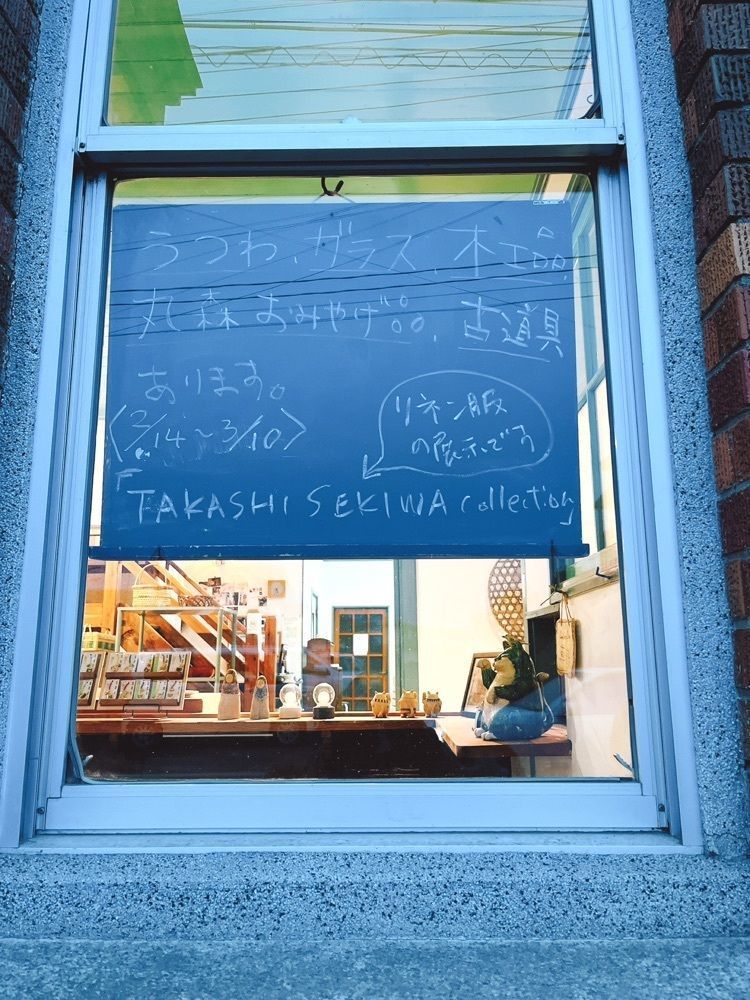 うつわ、ガラス、木工品、
丸森おみやげ品、古道具
あります。
〈2/14～3/10〉
リネン服
の展示です
「TAKASHI SEKIWA collection」